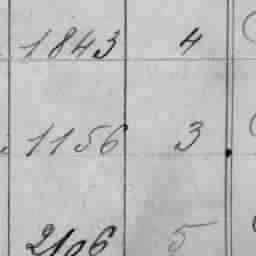 1843 4
1156 3
2106 5